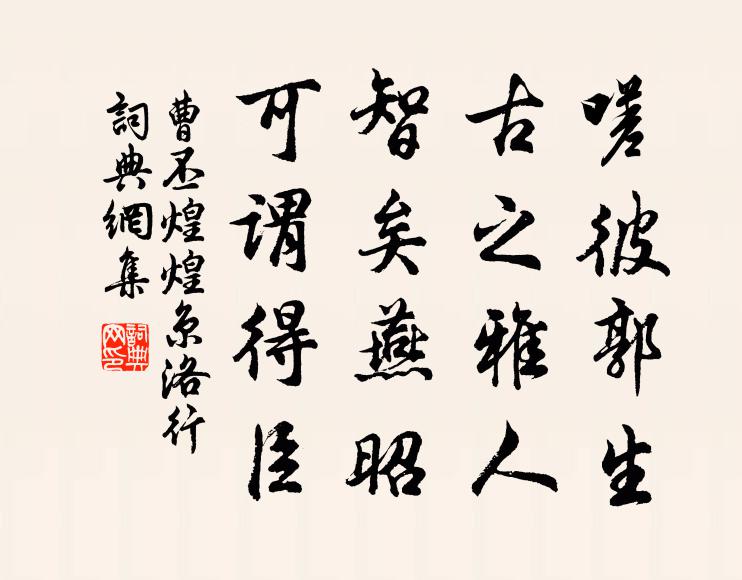 嗟彼郭生
古之雅人
智矣燕昭
可謂得臣
曹丕煌煌京洛行
詞典網集
詞典
网印